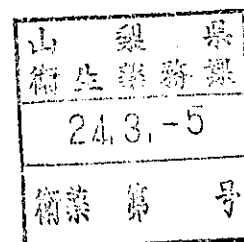 山梨県
衛生薬務課
24.3.-5
衛薬第 号